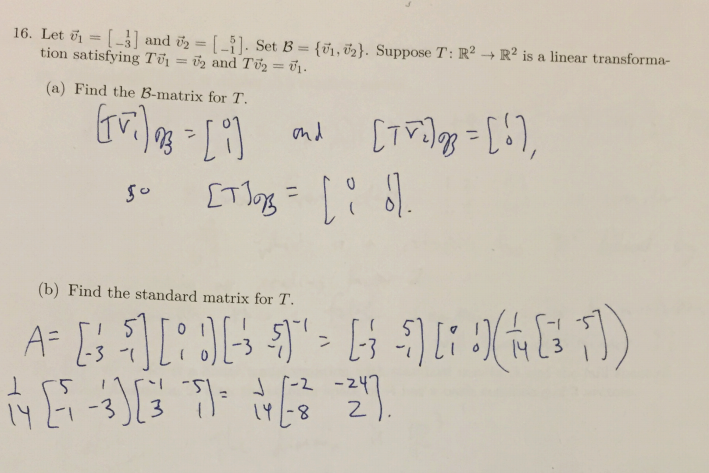 16. Let v⃗₁ = [1; -3] and v⃗₂ = [5; -1]. Set B = {v⃗₁, v⃗₂}. Suppose T: ℝ² → ℝ² is a linear transforma-
tion satisfying Tv⃗₁ = v⃗₂ and Tv⃗₂ = v⃗₁.
(a) Find the B-matrix for T.
[Tv⃗₁]_B = [0; 1] and [Tv⃗₂]_B = [1; 0],
so [T]_B = [0 1; 1 0].
(b) Find the standard matrix for T.
A = [1 5; -3 -1] [0 1; 1 0] [1 5; -3 -1]⁻¹ = [1 5; -3 -1] [0 1; 1 0] (1/14 [-1 -5; 3 1])
1/14 [5 1; -1 -3] [-1 -5; 3 1] = 1/14 [-2 -24; -8 2].